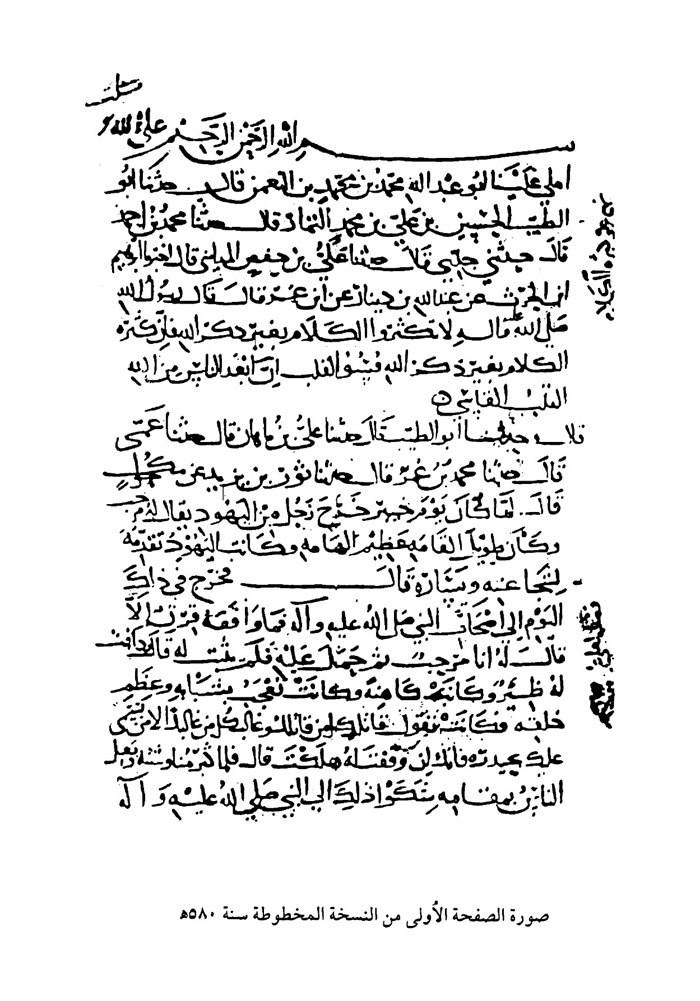 بسم الله الرحمن الرحيم
املى علينا ابو عبد الله محمد بن محمد بن النعمن قال حدثنا ابو
الطيب الحسين بن علي بن محمد التمار قال حدثنا محمد بن احمد
قال حدثني جدي قال حدثنا علي بن حفص المدايني قال اخبرنا ابرهيم
ابن الحرث عن عبد الله بن دينار عن ابن عمر قال قال رسول الله
صلى الله واله لا تكثروا الكلام بغير ذكر الله فان كثرة
الكلام بغير ذكر الله قسو القلب ان ابعد الناس من الله
القلب القاسي
قال حدثنا ابو الطيب قال حدثنا علي بن ماهان قال حدثنا عمي
قال حدثنا محمد بن عمر قال حدثنا ثور بن يزيد عن مكحول
قال لما كان يوم خيبر خرج رجل من اليهود يقال له مرحب
وكان طويل القامه عظيم الهامه وكانت اليهود تقدمه
لشجاعته ويساره قال فخرج في ذلك
اليوم الى اصحاب النبي صلى الله عليه وآله فما واقفه قرن الا
قال له انا مرحب ثم حمل عليه فلم يثبت له قال وكانت
له ظئر وكانت كاهنه وكانت تعجب بشبابه وعظم
خلقه وكانت تقول قاتل كل من قاتلك وغالب كل من غالبك الا من تسمى
عليك بحيدره فانك ان وقفت له هلكت قال فلما كثر مناوشته وبعل
الناس بمقامه شكوا ذلك الى النبي صلى الله عليه وآله
صورة الصفحة الأولى من النسخة المخطوطة سنة ٥٨٠هـ